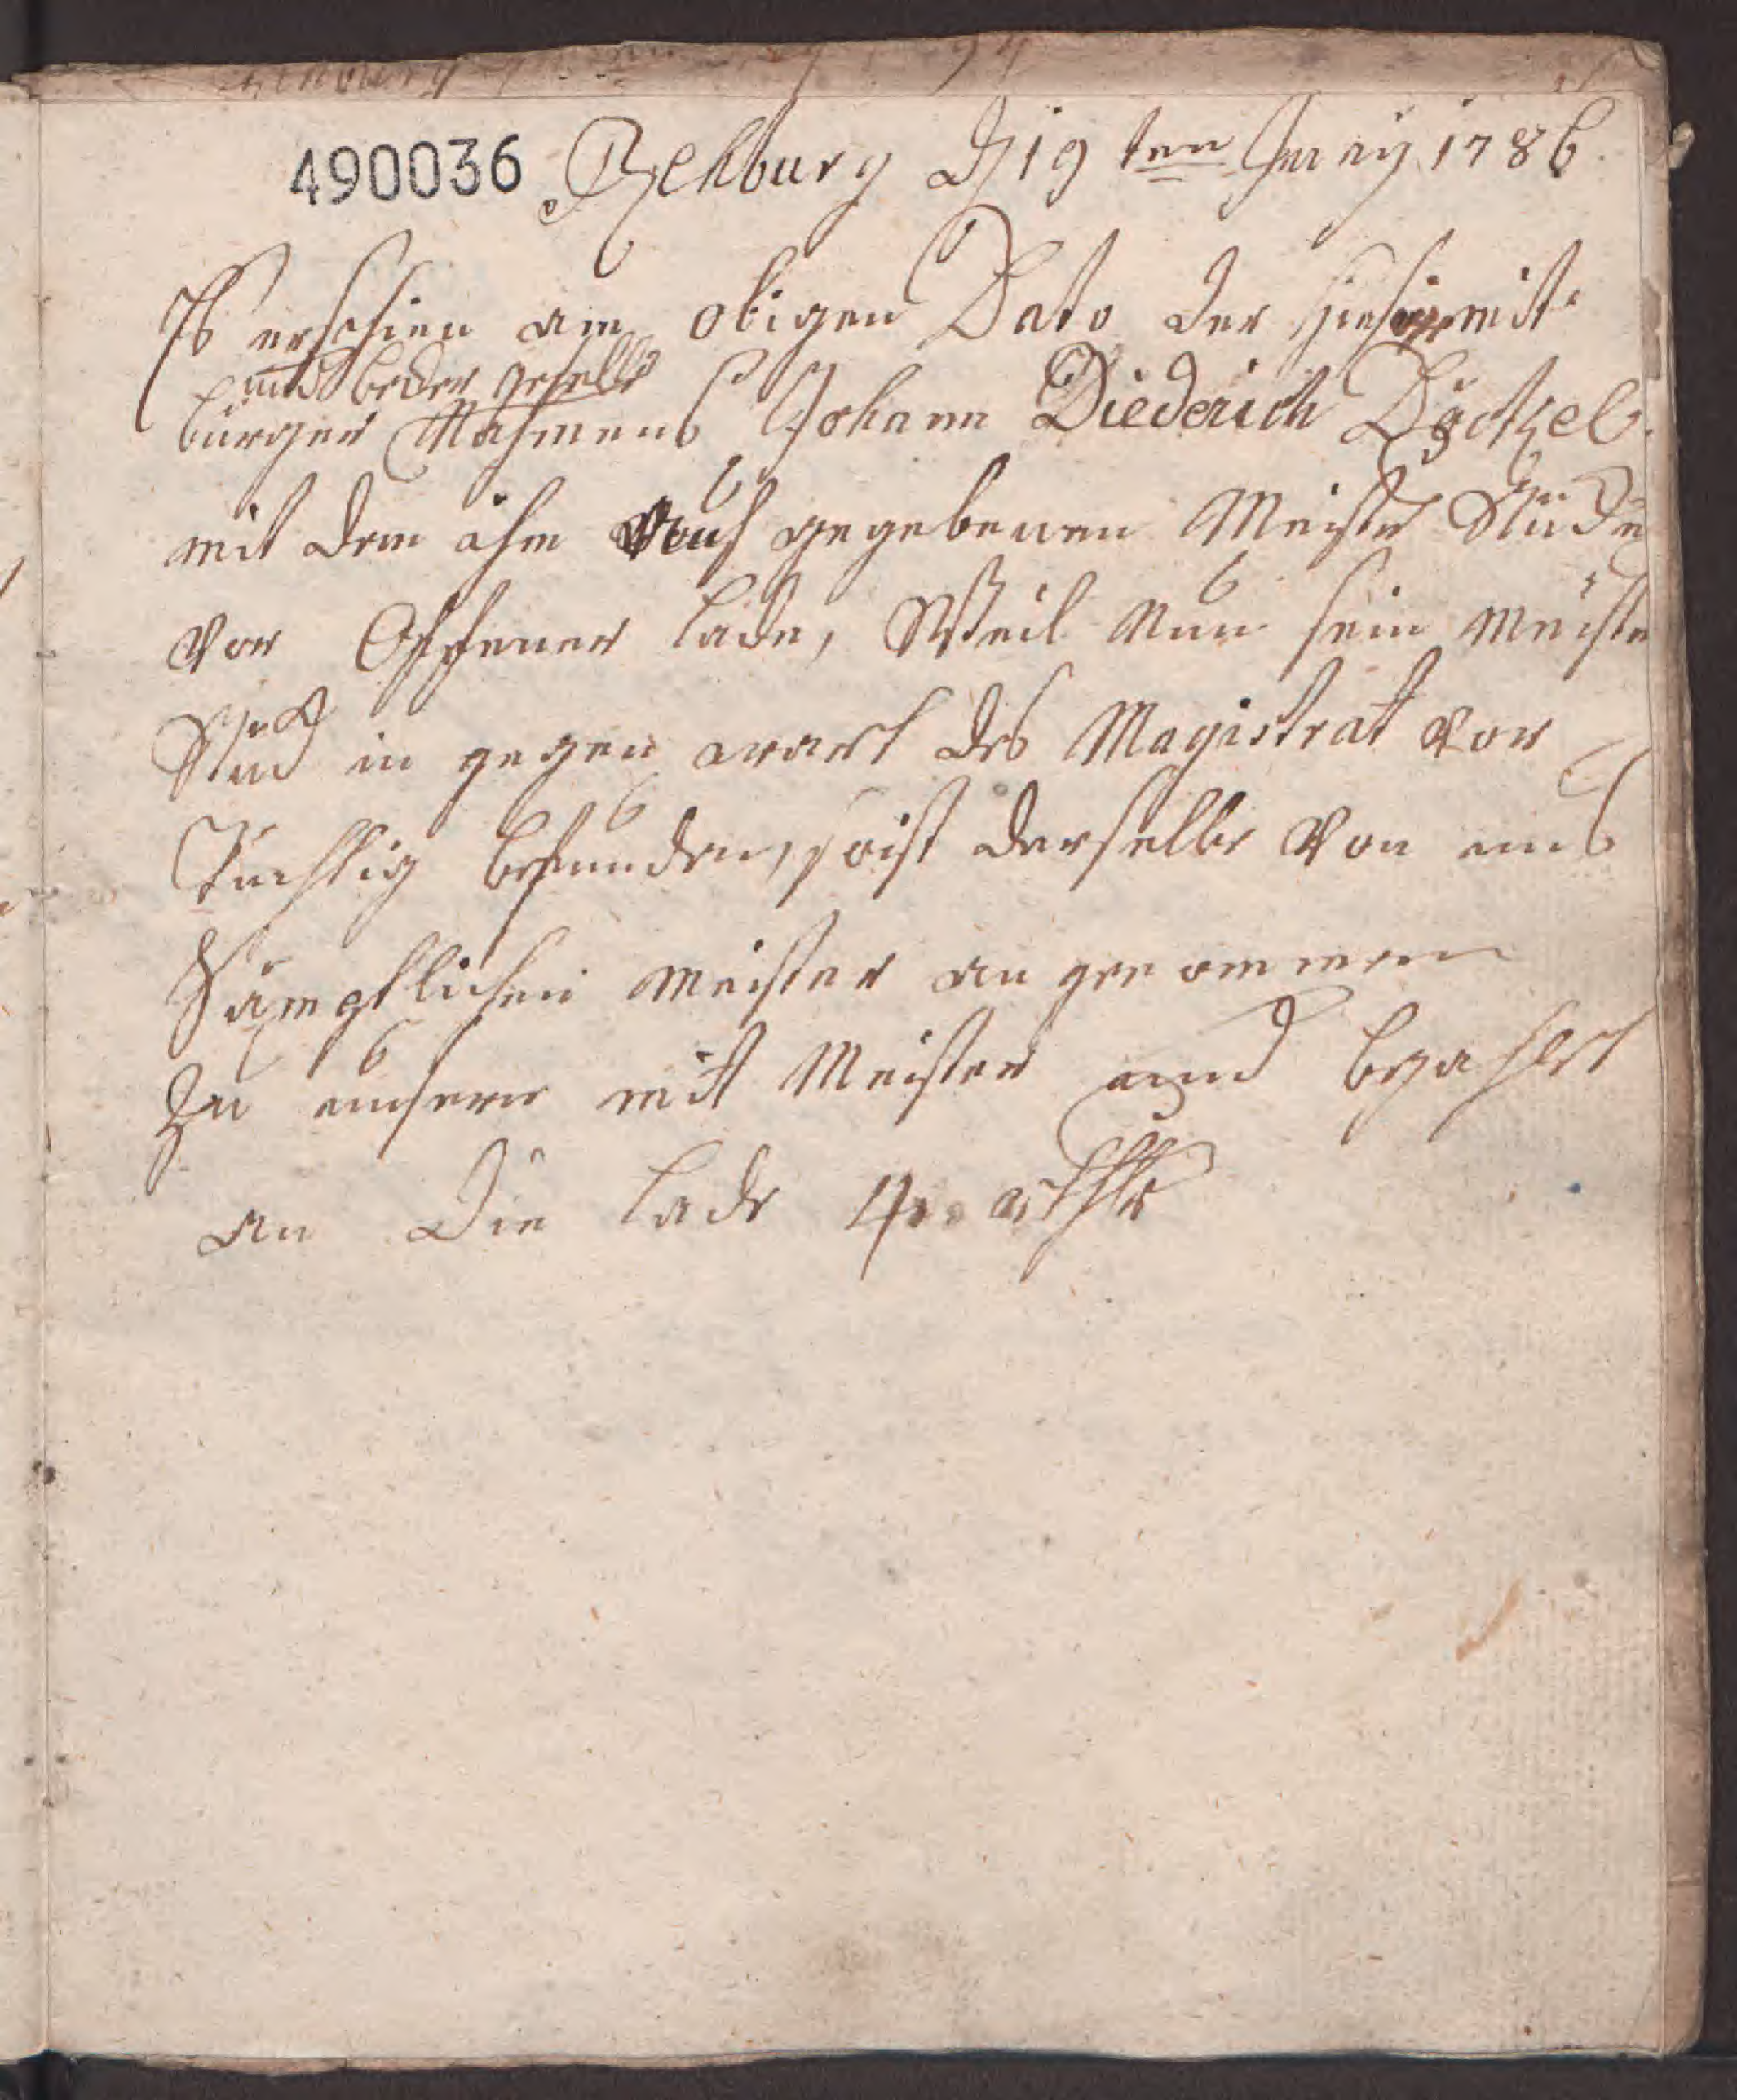 490036 Rehburg d 19ten Juny 1786
Es erschien am obigen Dato der hiesige mit
und becker geselle
bürger Nahmens Johann Diederich Däckel
mit dem ihm auf gegebenen Meister Stück
vor Offener lade, Weil Nun sein Meister
Stück in gegen wart des Magistrat vor
Tüchtig befunden, so ist derselbe Von uns
Sämptlichen Meister an genommen
Zu unsern mit Meister und bezahlt
an Die lade 4 rthlr